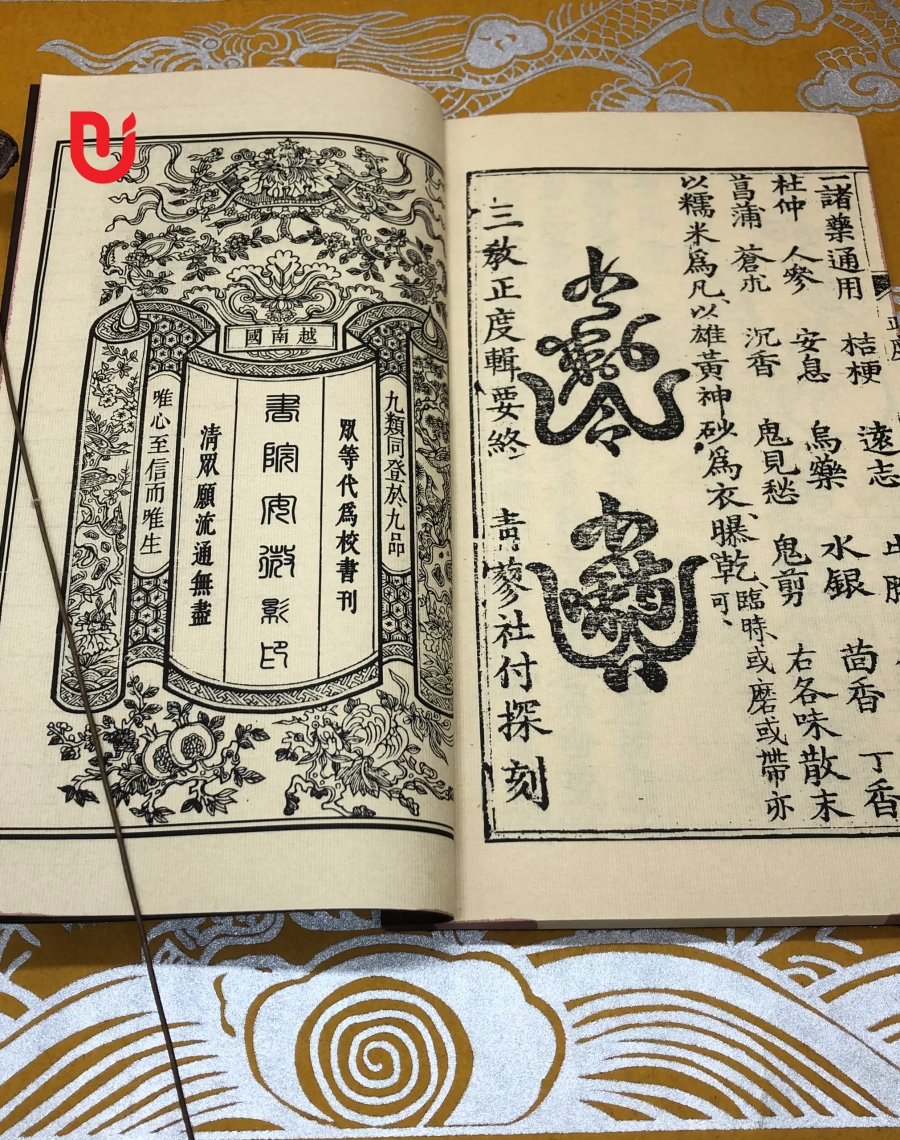 一諸藥通用 桔梗 遠志
杜仲 人參 安息 烏藥 水銀 茴香 丁香
菖蒲 蒼朮 沉香 鬼見愁 鬼剪 右各味散末
以糯米爲凡、以雄黃神砂爲衣、曝乾、臨時或磨或帶亦
可、
三教正度輯要終 青蓼社付探刻
越南國
九類同登於九品
眾等代爲校書刊
書院安微影印
清眾願流通無盡
唯心至信而唯生